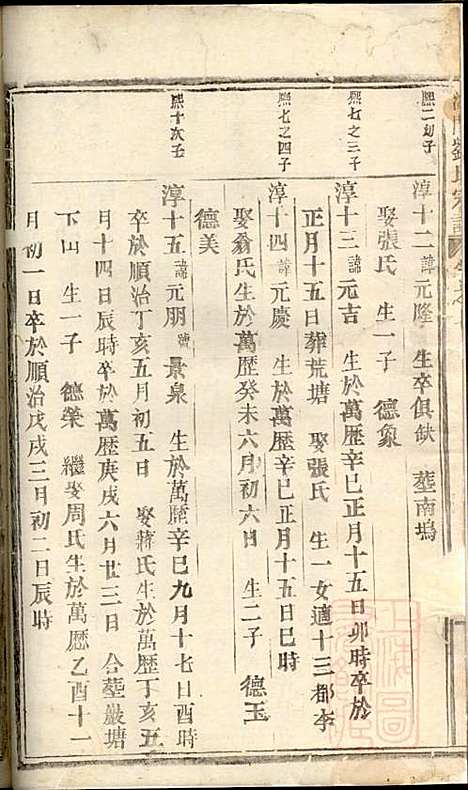 熙二幼子
淳十二諱元隆　生卒俱缺　塟南塢
娶張氏　生一子　德象
熙七之三子
淳十三諱元吉　生於萬歷辛巳正月十五日卯時卒於
正月十五日葬荒塘　娶張氏　生一女適十三都李
熙七之四子
淳十四諱元慶　生於萬歷辛巳正月十五日巳時
娶翁氏生於萬歷癸未六月初六日　生二子　德玉
德美
熙十次子
淳十五諱元朋號景泉　生於萬歷辛巳九月十七日酉時
卒於順治丁亥五月初五日　娶蔣氏生於萬歷丁亥五
月十四日辰時卒於萬歷庚戌六月廿三日　合塟嚴塘
下山　生一子　德榮　繼娶周氏生於萬歷乙酉十一
月初一日卒於順治戊戌三月初二日辰時
劉氏宗譜